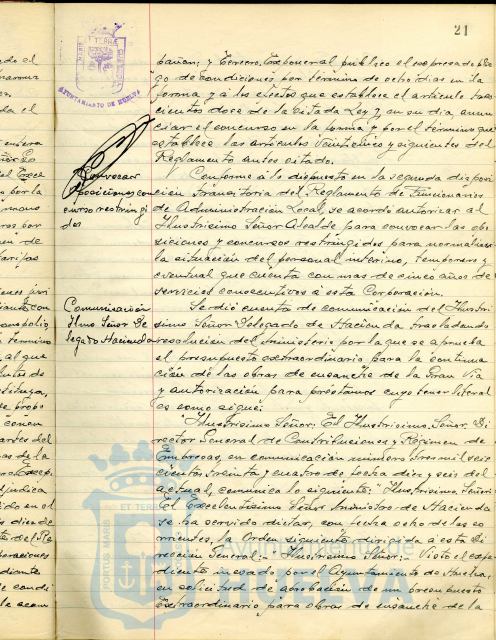 21
AYUNTAMIENTO DE HUELVA
pañan; y Tercero. Exponer al publico el expresado plie
go de condiciones por término de ocho dias en la
forma y a los efectos que establece el artículo tres
cientos doce de la citada Ley y, en su dia, anun
ciar el concurso en la forma y por el término que
establece los artículos veinticinco y siguientes del
Reglamento antes citado.
Convocar
oposiciones con
cursos restringi
dos
Conforme a lo dispuesto en la segunda disposi
ción transitoria del Reglamento de Funcionarios
de Administración Local, se acordó autorizar al
Ilustrisimo Señor Alcalde para convocar las opo
siciones y concursos restringidos para normalizar
la situación del personal interino, temporero y
eventual que cuenta con mas de cinco años de
servicios consecutivos a esta Corporación.
Comunicación
Ilmo Señor De
legado Hacienda
Se dió cuenta de comunicación del Ilustri
simo Señor Delegado de Hacienda trasladando
resolución del Ministerio por la que se aprueba
el presupuesto extraordinario para la continua
ción de las obras de ensanche de la Gran Via
y autorización para préstamos cuyo tenor literal
es como sigue:
"Ilustrisimo Señor: El Ilustrisimo Señor Di
rector General de Contribuciones y Régimen de
Empresas, en comunicación número tres mil seis
cientos treinta y cuatro de fecha diez y seis del
actual, comunica lo siguiente: "Ilustrisimo Señor:
El Excelentisimo Señor Ministro de Hacienda
se ha servido dictar, con fecha ocho de los co
rrientes, la Orden siguiente dirigida a esta Di
rección General:- Ilustrisimo Señor:- Visto el expe
diente incoado por el Ayuntamiento de Huelva,
en solicitud de aprobación de un presupuesto
extraordinario para obras de ensanche de la
PORTUS MARIS
ET TERRAE
HUELVA